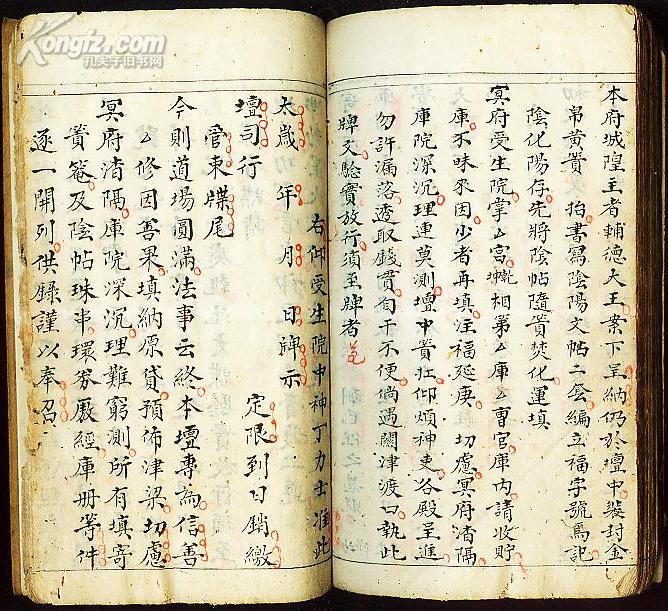 本府城隍王者輔德大王案下呈納仍於壇中裝封金
帛黃賮 抬書寫陰陽文帖二套編立福字號爲記
陰化陽存先將陰帖隨賮焚化運填
冥府受生院掌厶宮 相第厶庫厶曹官庫內請收貯
大庫不昧來因少者再填注福延庚切慮冥府渚隔
庫院深沉理連莫測壇中賮 仰煩神吏各殿呈進
勿許漏落透取錢貫旬干不便倘遇關津渡口執此
牌文驗實放行須至牌者
右仰受生院中神丁力士准此
太歲 年 月 日牌示
壇司行 定限到日銷繳
管束牒尾
今則道場圓滿法事云終本壇專為信善
厶修因善果填納原貸預佈津梁切慮
冥府渚隔庫院深沉理難窮測所有填寄
賮菴及陰帖珠串環劵厰經庫册等件
逐一開列供錄謹以奉召
Kongfz.com
孔夫子旧书网